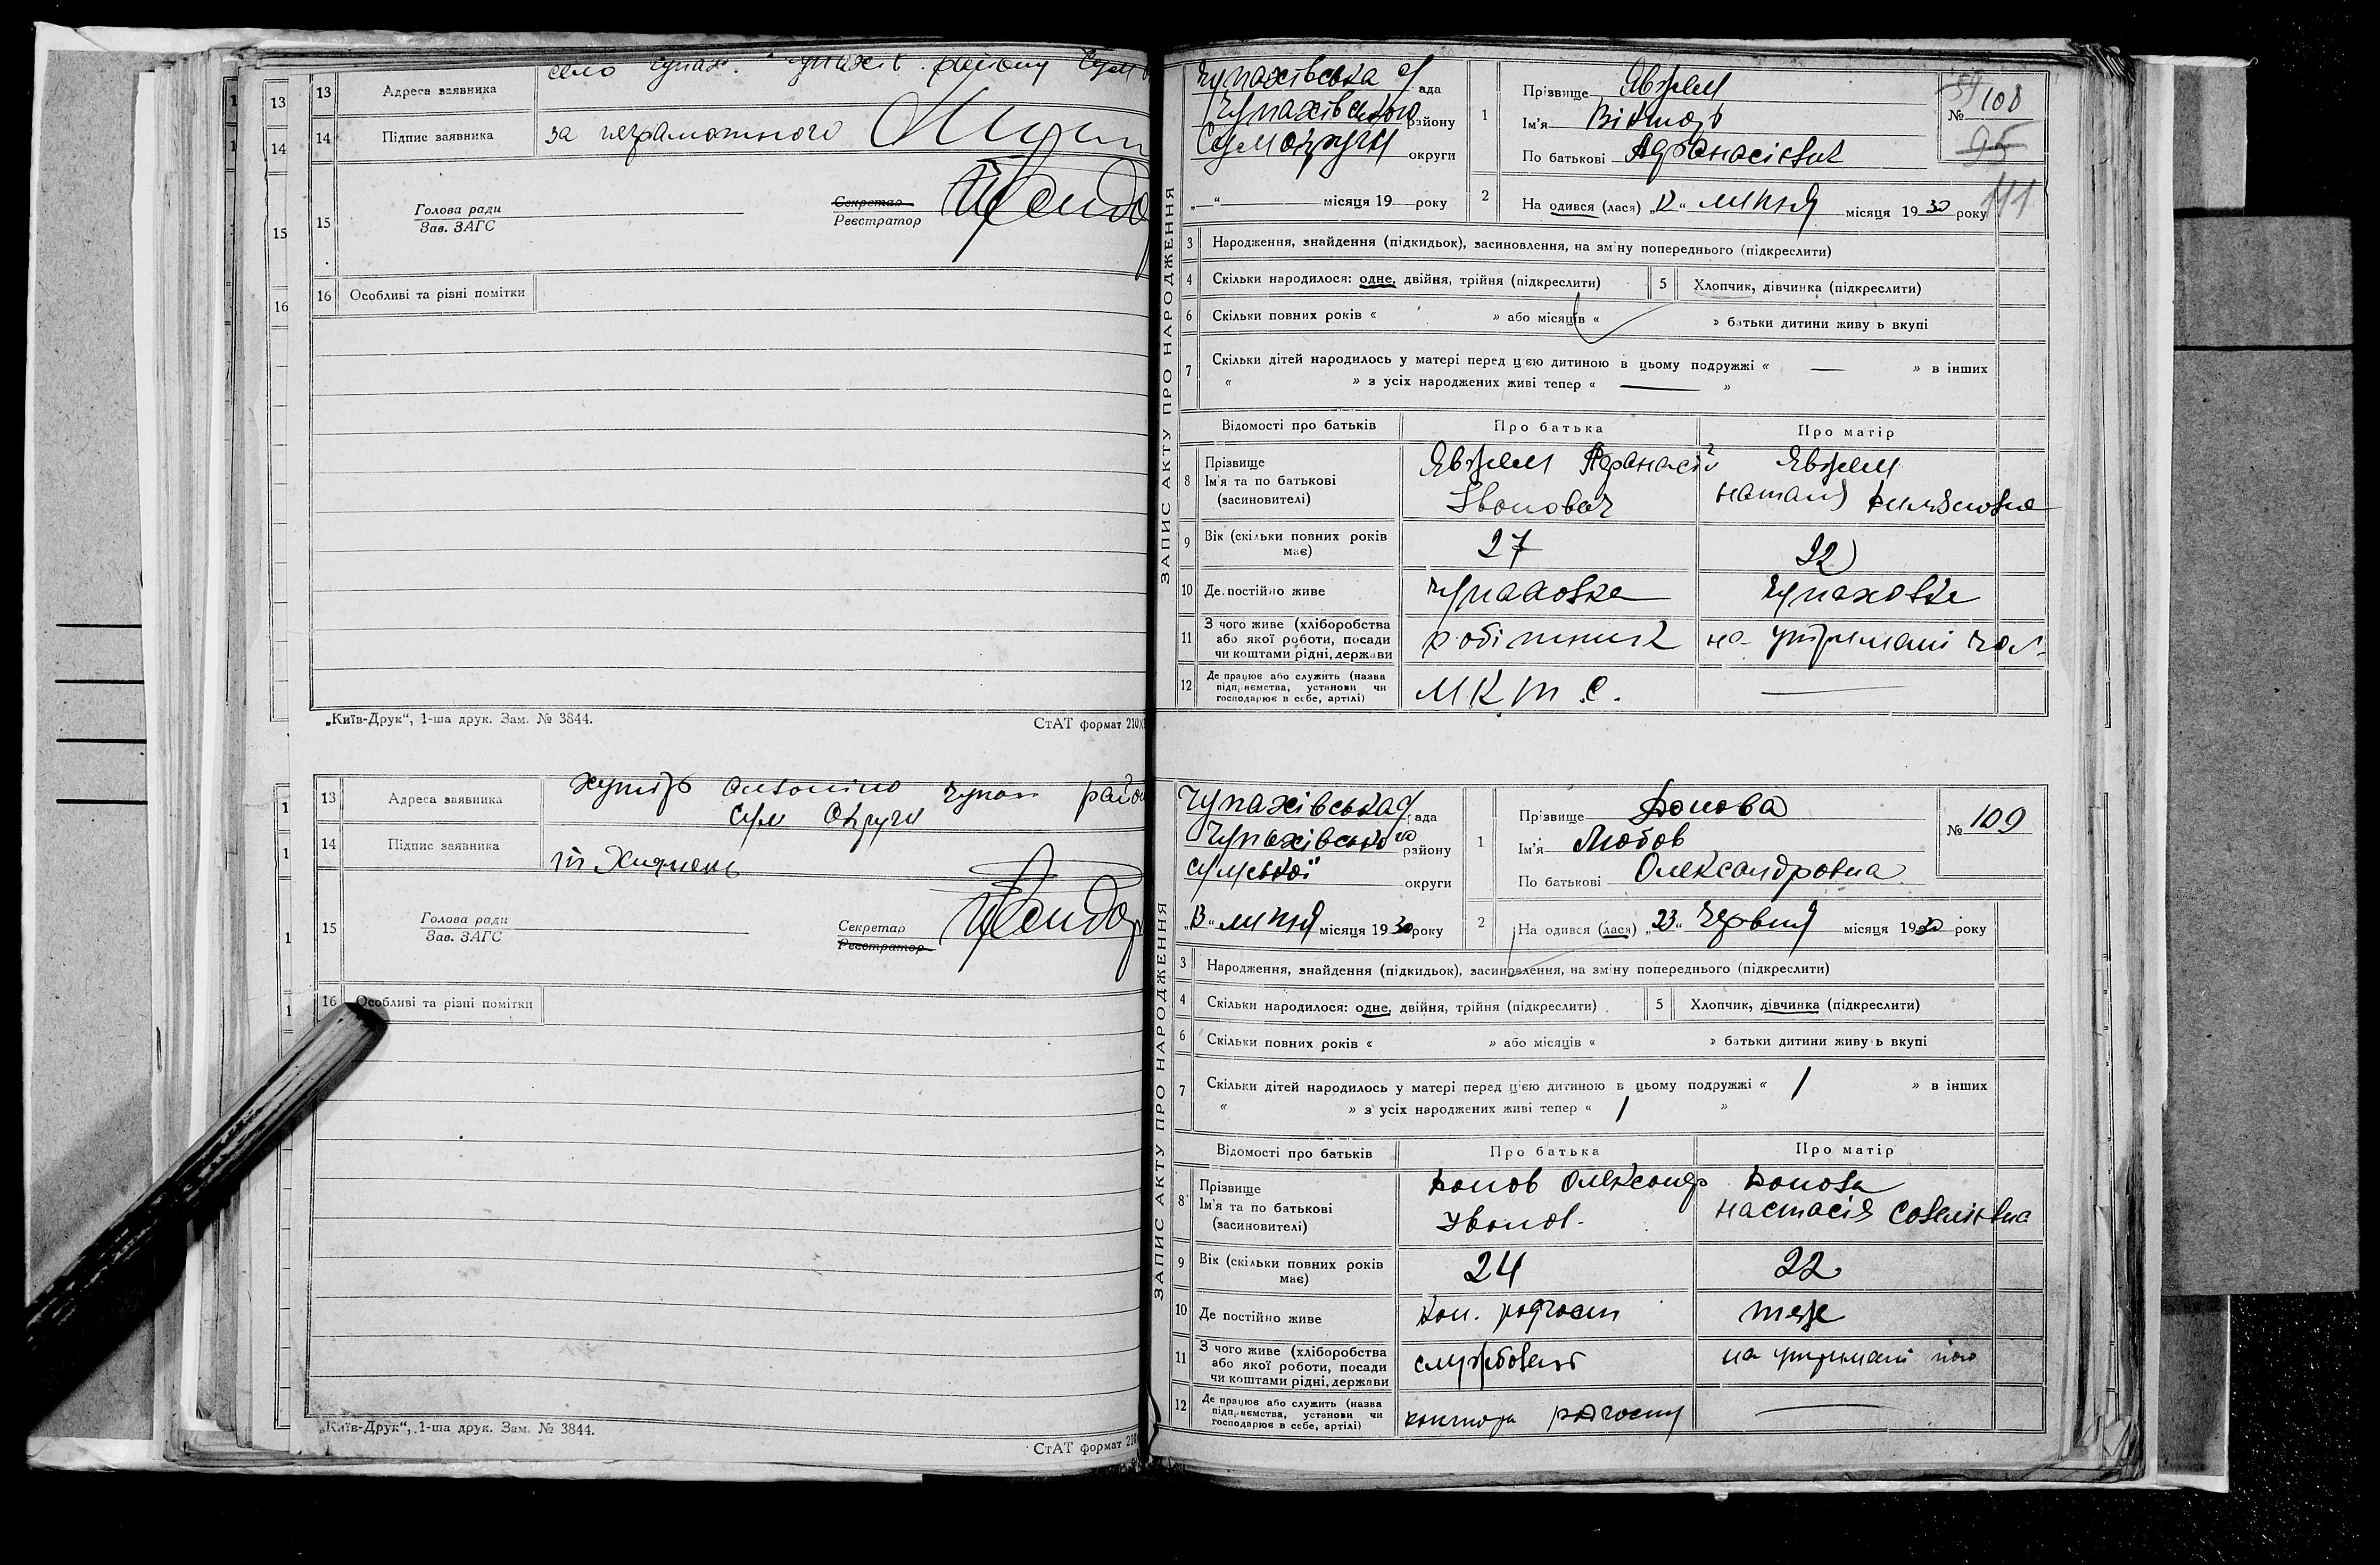 13 Адреса заявника село Чупах. району Сум
14 Підпис заявника за неграмотного
15 Голова ради
Зав. ЗАГС
Секретар
Реєстратор
16 Особливі та різні помітки
„Київ-Друк“, 1-ша друк. Зам. № 3844.
СтАТ формат 210х
13 Адреса заявника хутір Чупах район
Сум Округи
14 Підпис заявника
15 Голова ради
Зав. ЗАГС
Секретар
Реєстратор
16 Особливі та різні помітки
„Київ-Друк“, 1-ша друк. Зам. № 3844.
СтАТ формат 210
ЗАПИС АКТУ ПРО НАРОДЖЕННЯ
Чупахівська рада
Чупахівського району
Сумокруги округи
„ “ місяця 19 року
1 Прізвище
Ім'я Віктор
По батькові Афанасієвич
№ 108
95
111
2 На одився (лася) „12“ липня місяця 1930 року
3 Народження, знайдення (підкидьок), засиновлення, на зміну попереднього (підкреслити)
4 Скільки народилося: одне, двійня, трійня (підкреслити)
5 Хлопчик, дівчинка (підкреслити)
6 Скільки повних років « » або місяців « » батьки дитини живу ь вкупі
7 Скільки дітей народилось у матері перед цією дитиною в цьому подружжі « — » в інших
« » з усіх народжених живі тепер « — »
Відомості про батьків Про батька Про матір
8 Прізвище
Ім'я та по батькові
(засиновителі)
Афанасій
Іванович
Наталя
9 Вік (скільки повних років має) 27 22
10 Де постійно живе Чупаховка Чупаховка
11 З чого живе (хліборобства або якої роботи, посади чи коштами рідні, держави робітник на утримані чол.
12 Де працює або служить (назва підприємства, установи чи господарює в себе, артілі) М.К.Т.С. —
ЗАПИС АКТУ ПРО НАРОДЖЕННЯ
Чупахівська рада
Чупахівського району
Сумської округи
„13“ липня місяця 1930 року
1 Прізвище Донова
Ім'я Любов
По батькові Олександровна
№ 109
2 На одився (лася) „23“ Червня місяця 1930 року
3 Народження, знайдення (підкидьок), засиновлення, на зміну попереднього (підкреслити)
4 Скільки народилося: одне, двійня, трійня (підкреслити)
5 Хлопчик, дівчинка (підкреслити)
6 Скільки повних років « » або місяців « » батьки дитини живу ь вкупі
7 Скільки дітей народилось у матері перед цією дитиною в цьому подружжі « 1 » в інших
« » з усіх народжених живі тепер « 1 »
Відомості про батьків Про батька Про матір
8 Прізвище
Ім'я та по батькові
(засиновителі)
Донов Олександр
Іванов.
Донова
Настасія Савелієвна
9 Вік (скільки повних років має) 24 22
10 Де постійно живе теж
11 З чого живе (хліборобства або якої роботи, посади чи коштами рідні, держави службовець на утримані його
12 Де працює або служить (назва підприємства, установи чи господарює в себе, артілі) контора радгоспу —